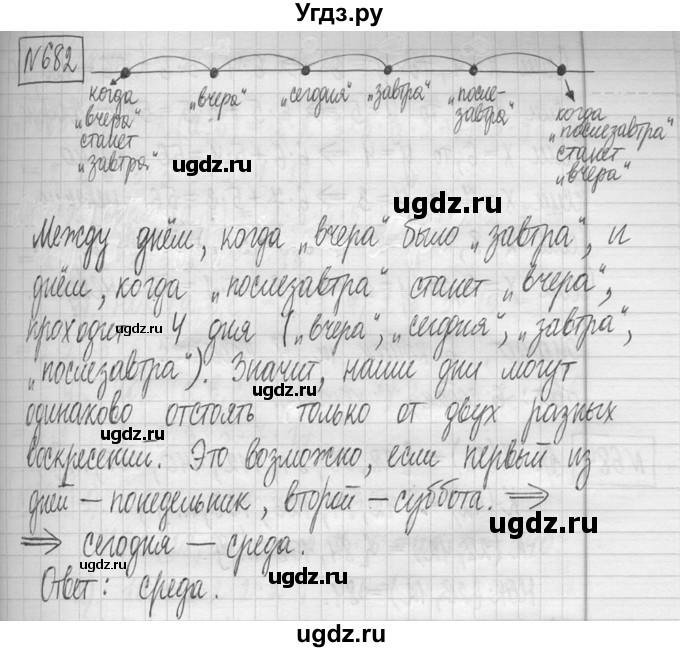 Угдз.ру
№682
когда „вчера“ станет „завтра“
„вчера“
„сегодня“
„завтра“
„после-завтра“
когда „послезавтра“ станет „вчера“
ugdz.ru
ugdz.ru
Между днём, когда „вчера“ было „завтра“, и
днём, когда „послезавтра“ станет „вчера“,
ugdz.ru
4 дня („вчера“, „сегодня“, „завтра“,
ugdz.ru
„послезавтра“). Значит, наши дни могут
ugdz.ru
одинаково отстоять только от двух разных
ugdz.ru
воскресений. Это возможно, если первый из
ugdz.ru
дней – понедельник, второй – суббота. ⇒
ugdz.ru
⇒ сегодня – среда.
ugdz.ru
ugdz.ru
Ответ: среда.
ugdz.ru
ugdz.ru